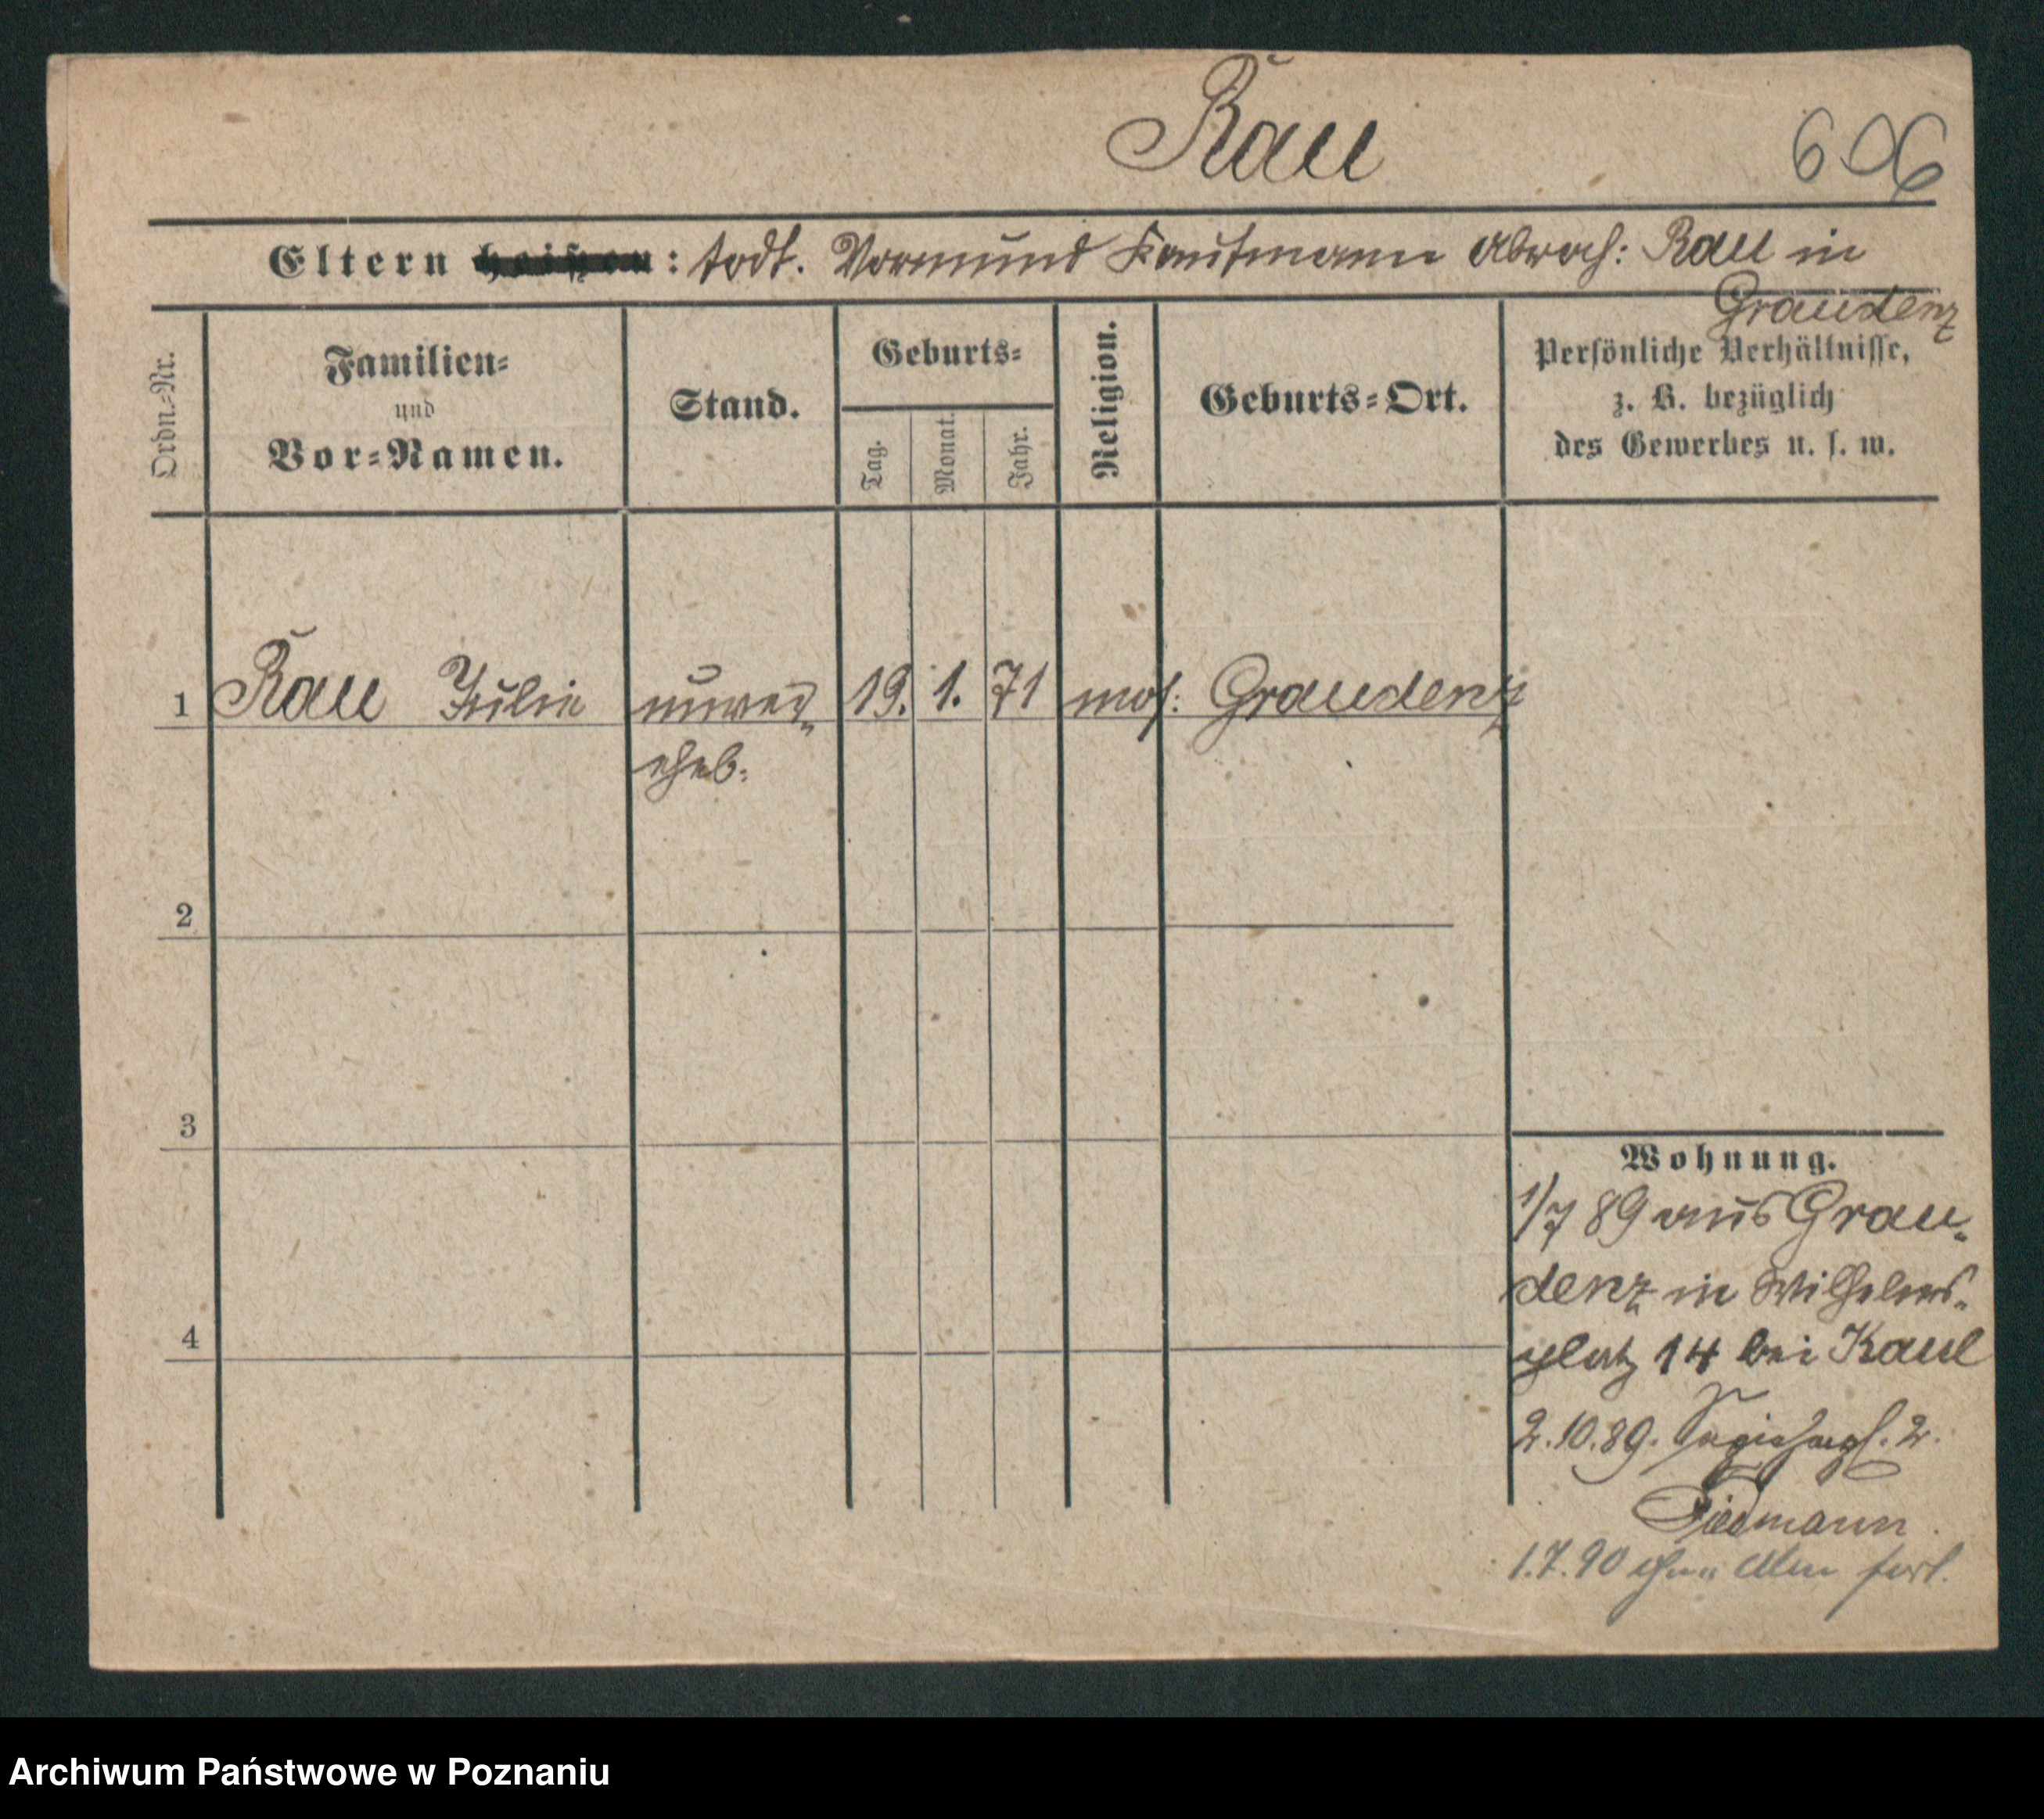 Rau
606
Eltern heißen: todt. Vormund Kaufmann Abrah: Rau in
Graudenz
Ordn.-Nr.
Familien-
und
Vor-Namen.
Stand.
Geburts-
Tag.
Monat.
Jahr.
Religion.
Geburts-Ort.
Persönliche Verhältnisse,
z. B. bezüglich
des Gewerbes u. s. w.
1 Rau Julie unver- 19. 1. 71 mos: Graudenz
eheb:
2
3
4
Wohnung.
1/7 89 aus Grau-
denz in Wilhelms-
platz 14 bei Kaul
2.10.89. 2.
1.7.90 ohne Abm fort.
Archiwum Państwowe w Poznaniu